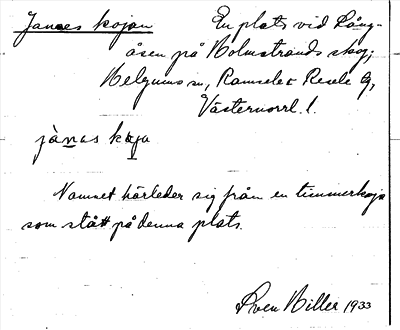 Janses kojan
En plats vid Lång-
åsen på Holmstrands skog,
Helgums sn, Ramsele o Resele tg,
Västernorrl. l.
jànas kòja
Namnet härleder sig från en timmerkoja
som stått på denna plats.
Sven Hiller 1933